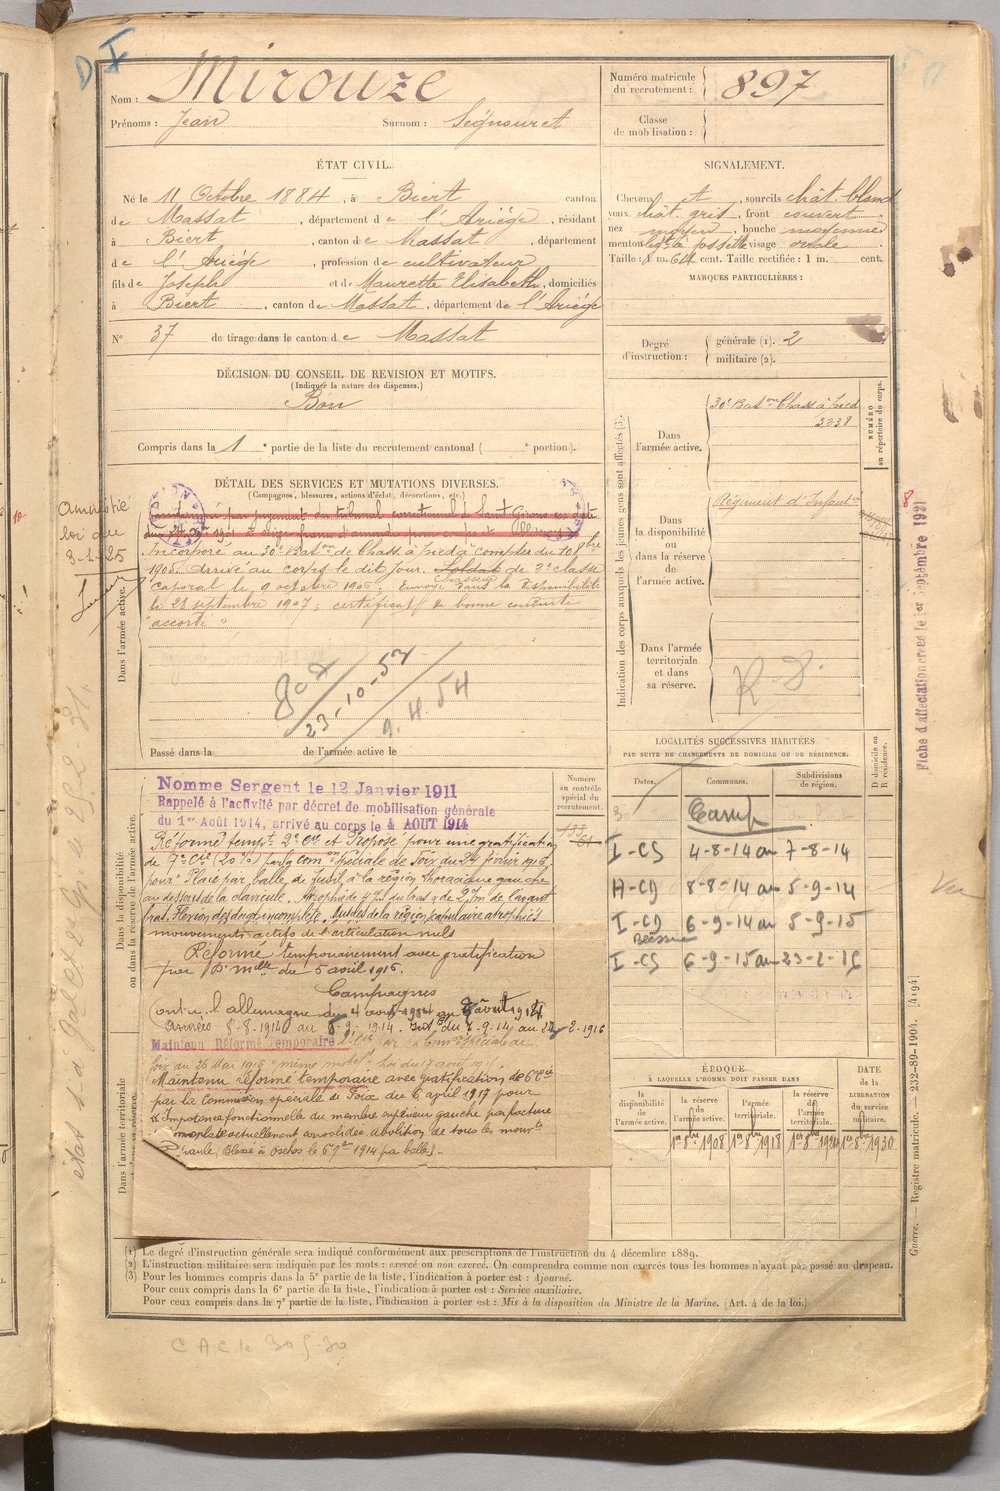 D X
Nom : Mirouze
Prénoms : Jean Surnom : Ségnouret
Numéro matricule du recrutement : 897
Classe de mobilisation :
ÉTAT CIVIL.
Né le 11 Octobre 1884, à Biert canton
de Massat, département de l'Ariège, résidant
à Biert, canton de Massat, département
de l'Ariège, profession de cultivateur
fils de Joseph et de Maurette Elisabeth, domiciliés
à Biert, canton de Massat, département de l'Ariège
N° 37 de tirage dans le canton de Massat
SIGNALEMENT.
Cheveux et, sourcils chât. blond
yeux chât. gris, front couvert
nez moyen, bouche moyenne
menton à fossette visage ovale
Taille : 1 m. 64 cent. Taille rectifiée : 1 m. cent.
MARQUES PARTICULIÈRES :
Degré d'instruction : générale (1). 2
militaire (2).
DÉCISION DU CONSEIL DE REVISION ET MOTIFS.
(Indiquer la nature des dispenses.)
Bon
Compris dans la 1e partie de la liste du recrutement cantonal ( e portion).
DÉTAIL DES SERVICES ET MUTATIONS DIVERSES.
(Campagnes, blessures, actions d'éclat, décorations, etc.)
Amnistié
loi du
3-1-25
Condamné par jugement du tribunal correctionnel de Saint Girons en date
Incorporé au 30e Baton de Chass. à pied à compter du 10 8bre
1905. Arrivé au corps le dit jour. Soldat de 2e classe
Chasseur
Caporal le 9 octobre 1906. Envoyé dans la disponibilité
le 28 septembre 1907; certificat de bonne conduite
"accordé"
807
23-10-53
9.4.54
Dans l'armée active.
Passé dans la de l'armée active le
Indication des corps auxquels les jeunes gens sont affectés (3).
Dans l'armée active.
30e Baton Chass à pied
3238
NUMÉRO au répertoire du corps.
Dans la disponibilité ou dans la réserve de l'armée active.
Régiment d'Infanterie
Dans l'armée territoriale et dans sa réserve.
R-8.
Fiche d'affectation créée le 1er Septembre 1921
LOCALITÉS SUCCESSIVES HABITÉES
PAR SUITE DE CHANGEMENTS DE DOMICILE OU DE RÉSIDENCE.
D domicile ou R résidence.
Dates. Communes. Subdivisions de région.
Camp
I-CS 4-8-14 au 7-8-14
A-CD 8-8-14 au 5-9-14
I-CD 6-9-14 au 5-9-15
Blessure
I-CS 6-9-15 au 23-2-16
Dans la disponibilité ou dans la réserve de l'armée active.
Nommé Sergent le 12 Janvier 1911
Rappelé à l'activité par décret de mobilisation générale
du 1er Août 1914, arrivé au corps le 4 AOUT 1914
Numéro au contrôle spécial du recrutement.
Réformé tempre 2e Cie et Proposé pour une gratification
de 7e Cie (20%) par la com on spéciale de Foix du 24 février 1916
pour: Plaie par balle de fusil à la région thoracique gauche
au dessous de la clavicule. Atrophie
bras. Flexion des doigts incomplète. Muscles de la région scapulaire atrophiés
mouvements actifs de l'articulation nuls
Réformé temporairement avec gratification
par Don mlle du 5 avril 1916.
Campagnes
Contre l'allemagne du 4 août 1914 au 7 août 1914
Armées 8-8-1914 au 5-9-1914. Int. du 6.9.14 au 23-2-1916
Maintenu Réformé Temporaire
Foix du 26 Mai 1916 "même motif" loi du 17 avril
Maintenu réformé temporaire avec gratification de 6e Cie
par la Commission spéciale de Foix du 6 avril 1917 pour
"Impotence fonctionnelle du membre supérieur gauche par fracture
omoplate actuellement consolidée. Abolition de tous les mouvts
(Blessé à Oschos le 6 7bre 1914 par balle)".
Dans l'armée territoriale
ÉPOQUE
À LAQUELLE L'HOMME DOIT PASSER DANS
la disponibilité de l'armée active.
la réserve de l'armée active.
l'armée territoriale.
la réserve de l'armée territoriale.
DATE de la LIBÉRATION du service militaire.
1er 8bre 1908
1er 8bre 1918
1er 8bre 1924
1er 8bre 1930
Guerre. — Registre matricule. — 232-89-1904. [4194]
(1) Le degré d'instruction générale sera indiqué conformément aux prescriptions de l'instruction du 4 décembre 1889.
(2) L'instruction militaire sera indiquée par les mots : exercé ou non exercé. On comprendra comme non exercés tous les hommes n'ayant pas passé au drapeau.
(3) Pour les hommes compris dans la 5e partie de la liste, l'indication à porter est : Ajourné.
Pour ceux compris dans la 6e partie de la liste, l'indication à porter est : Service auxiliaire.
Pour ceux compris dans la 7e partie de la liste, l'indication à porter est : Mis à la disposition du Ministre de la Marine. (Art. 4 de la loi.)